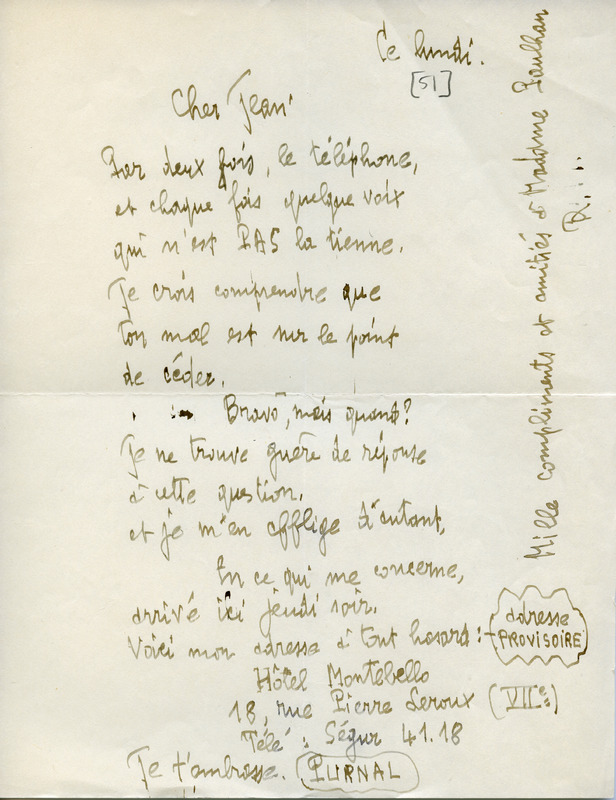 Ce lundi.
[51]
Cher Jean
Par deux fois, le téléphone,
et chaque fois quelque voix
qui n'est PAS la tienne.
Je crois comprendre que
ton mal est sur le point
de céder.
Bravo, mais quand?
Je ne trouve guère de réponse
à cette question,
et je m'en afflige d'autant.
En ce qui me concerne,
arrivé ici jeudi soir.
Voici mon adresse à tout hasard :
adresse
PROVISOIRE
Hôtel Montebello
18, rue Pierre Leroux (VIIe)
Télé : Ségur 41.18
Je t'embrasse. PURNAL
Mille compliments et amitiés à Madame Paulhan